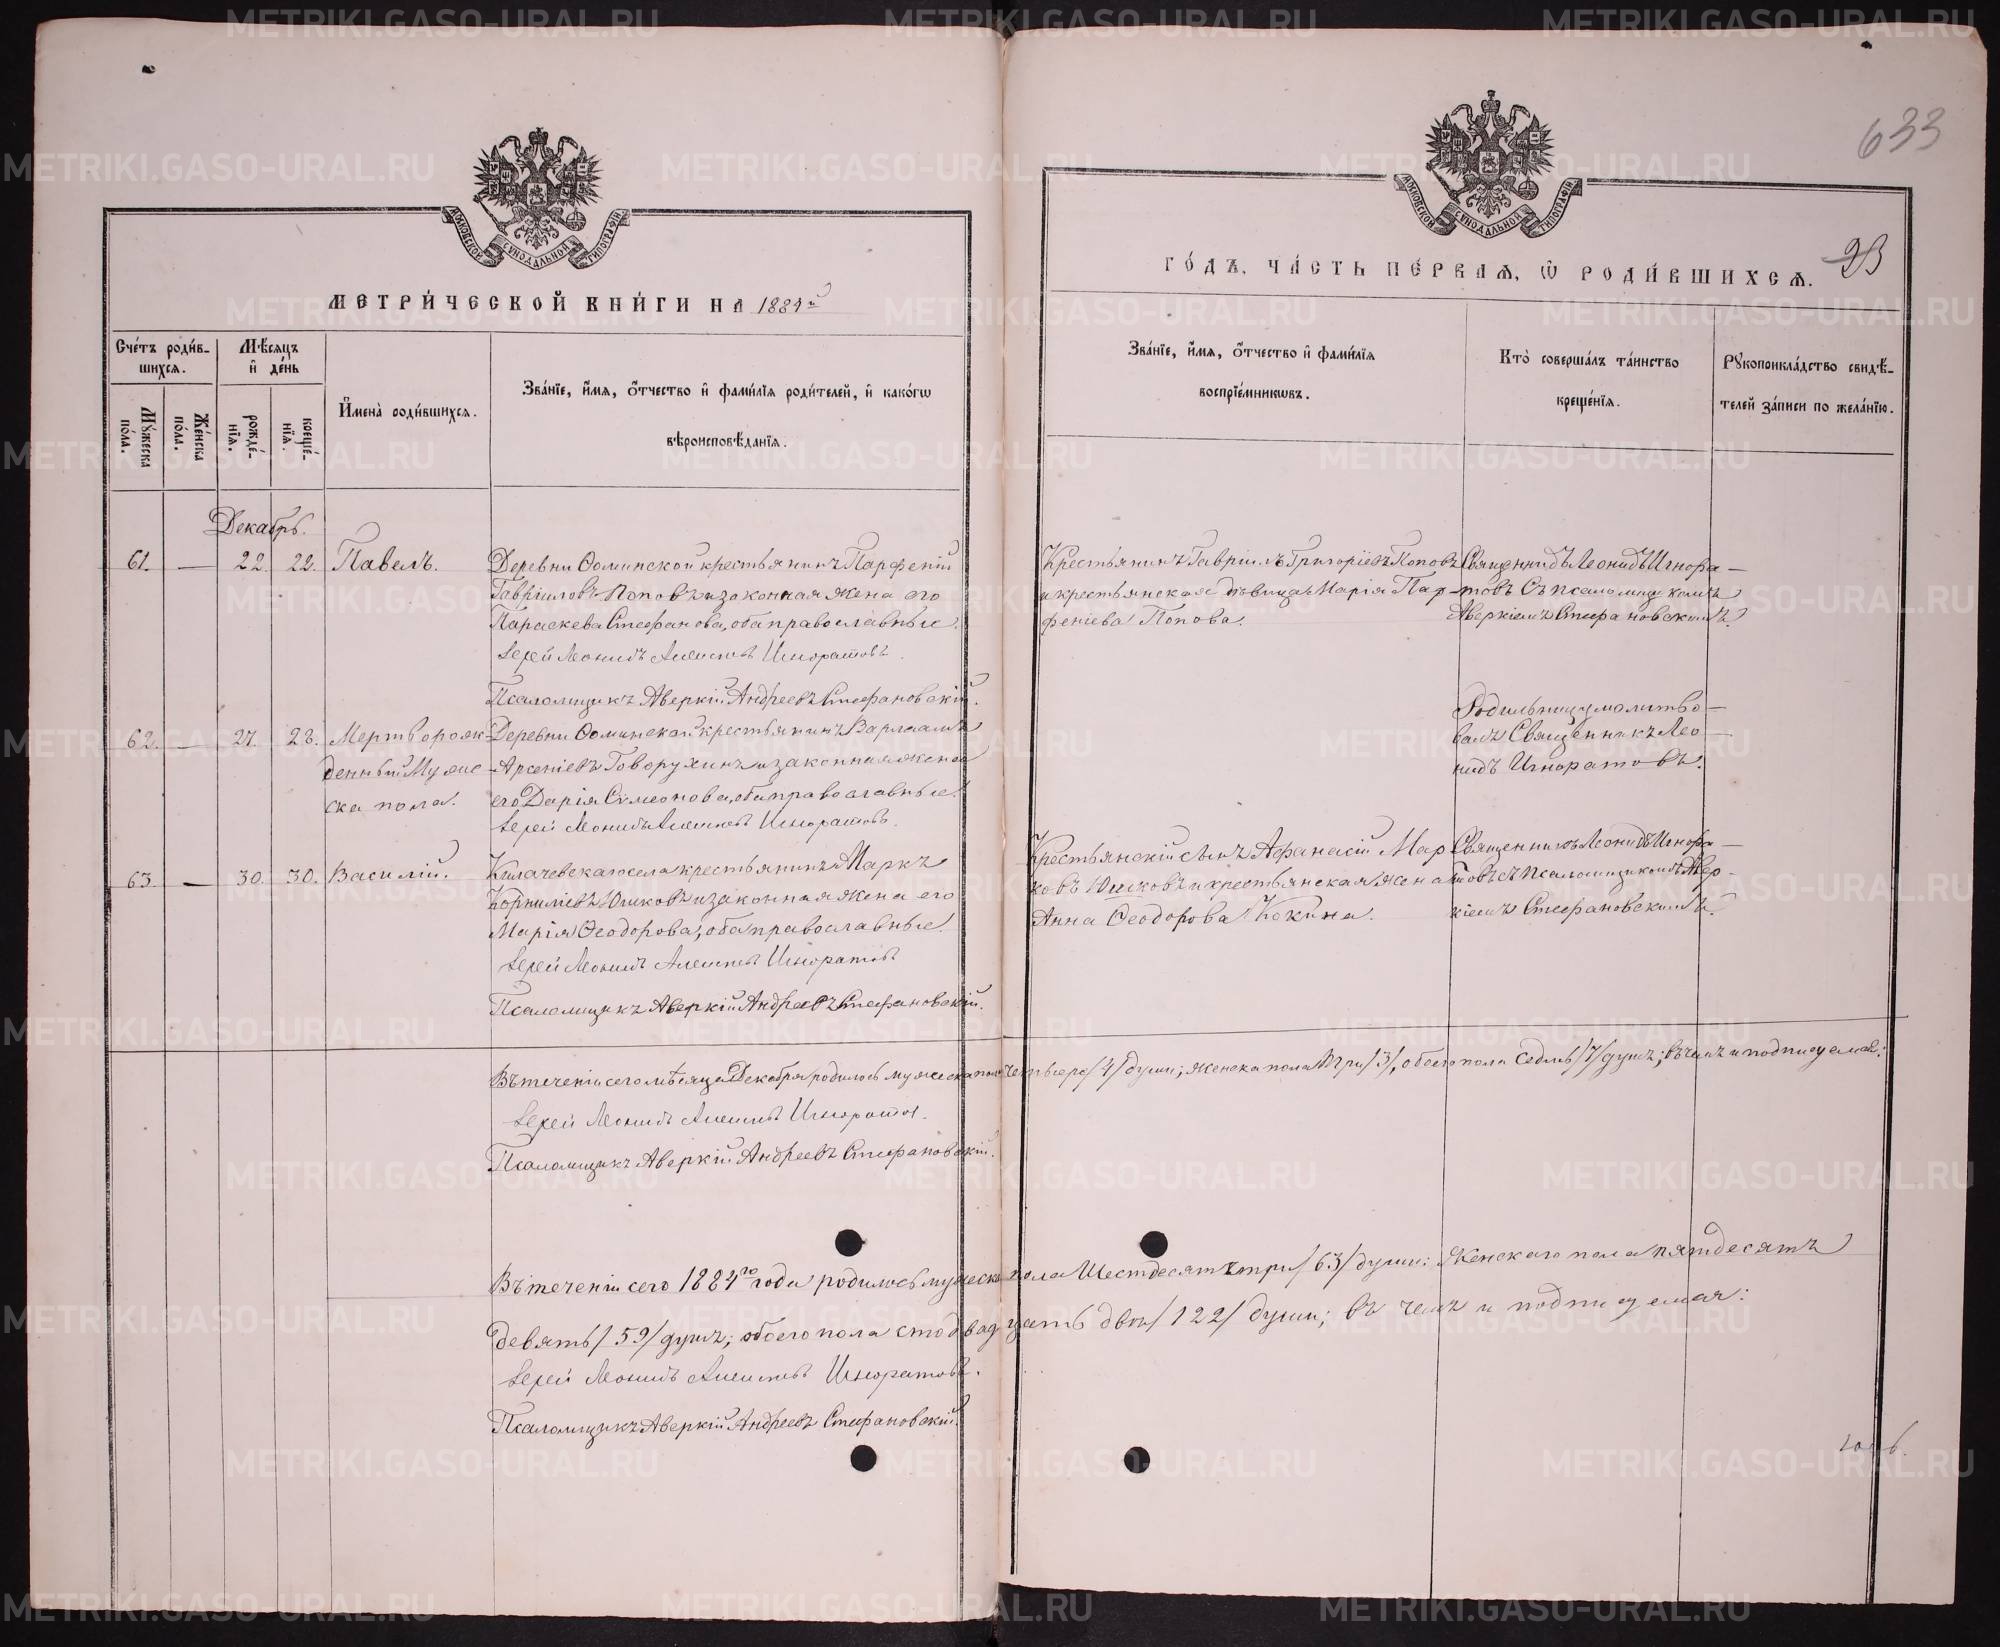 633
МОСКОВСКОЙ СѴНОДАЛЬНОЙ ТИПОГРАФІИ
МОСКОВСКОЙ СѴНОДАЛЬНОЙ ТИПОГРАФІИ
МЕТРИ́ЧЕСКОЙ КНИ́ГИ НА 1884й
ГО́ДЪ, ЧА́СТЬ ПЕ́РВАѦ, Ѽ РОДИ́ВШИХСѦ.
Сче́тъ роди́в-
шихся.
Мѣ́сяцъ
и де́нь
Мꙋ́жеска
по́ла.
Же́нска
по́ла.
рожде́-
нїя.
креще́-
нїя.
Имена̀ роди́вшихся.
Зва́нїе, и́мя, ѻ́тчество и фами́лїя роди́телей, и како́гѡ
вѣроисповѣ́данїя.
Зва́нїе, и́мя, ѻ́тчество и фами́лїя
воспрїе́мниковъ.
Кто̀ соверша́лъ та́инство
креще́нїя.
Рꙋкоприкла́дство свидѣ́-
телей за́писи по жела́нїю.
Декабрь.
61. — 22. 22. Павелъ.
Деревни Ѳоминской крестьянинъ Парфеній
Гавріиловъ Поповъ и законная жена его
Параскева Стефанова, оба православные.
Іерей Леонидъ Алексіевъ Игноратовъ.
Псаломщикъ Аверкій Андреевъ Стефановскій.
Крестьянинъ Гавріилъ Григоріевъ Поповъ
и крестьянская дѣвица Марія Пар-
феніева Попова.
Священникъ Леонидъ Игнора-
товъ съ псаломщикомъ
Аверкіемъ Стефановскимъ.
62. — 27. 28. Мертворож-
денный Муже-
ска пола.
Деревни Ѳоминской крестьянинъ Варлаамъ
Арсеніевъ Говорухинъ и законная жена
его Дарія Сѵмеонова, оба православные.
Іерей Леонидъ Алексіевъ Игноратовъ.
Родильницу молитво-
валъ Священникъ Лео-
нидъ Игноратовъ.
63. — 30. 30. Василій.
Килачевскаго села крестьянинъ Маркъ
Корниліевъ Юшковъ и законная жена его
Марія Ѳеодорова, оба православные.
Іерей Леонидъ Алексіевъ Игноратовъ
Псаломщикъ Аверкій Андреевъ Стефановскій.
Крестьянскій сынъ Афанасій Мар
ковъ Юшковъ и крестьянская жена
Анна Ѳеодорова Кокина.
Священникъ Леонидъ Игнора-
товъ съ Псаломщикомъ Авер-
кіемъ Стефановскимъ.
Въ теченіи сего мѣсяца Декабря родилось мужеска пола четыре /4/ души; женска пола три /3/, обоего пола семь /7/ душъ; въ чемъ и подписуемся:
Іерей Леонидъ Алексіевъ Игноратовъ.
Псаломщикъ Аверкій Андреевъ Стефановскій.
Въ теченіи сего 1884го года родилось мужеска пола Шестдесятъ три /63/ души; Женскаго пола пятдесятъ
девять /59/ душъ; обоего пола сто двадцать двѣ /122/ души; въ чемъ и подписуемся:
Іерей Леонидъ Алексіевъ Игноратовъ.
Псаломщикъ Аверкій Андреевъ Стефановскій.
METRIKI.GASO-URAL.RU